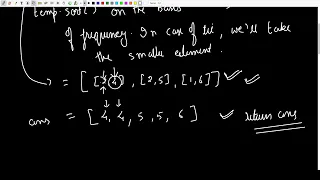 temp.sort() on the basis
of frequency. In case of tie, we'll take
the smaller element.
= [ [2, 4], [2, 5], [1, 6] ]
ans = [ 4, 4, 5, 5, 6 ] return ans